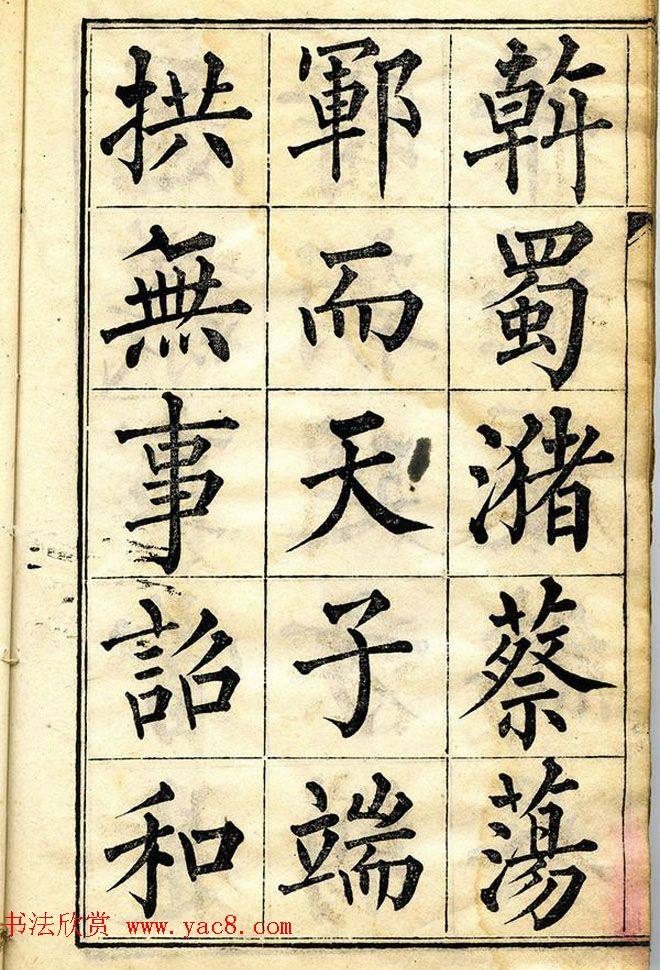 斡蜀潴蔡蕩
鄆而天子端
拱無事詔和
书法欣赏 www.yac8.com